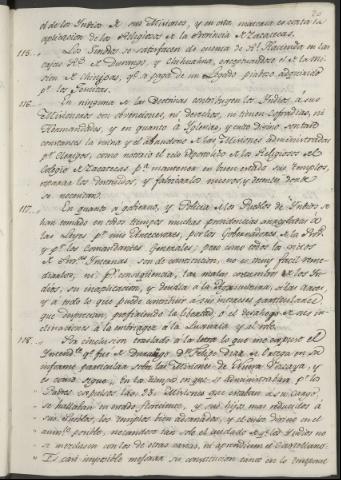 el de los Indios de sus Misiones, y en otra
aplicacion de los Religiosos de la Provincia de Zacatecas.
115. Los Sinodos se satisfacen de cuenta de Rl. Hacienda en las
cajas Rs. de Durango, y Chihuahua, exceptuandose el de la mi-
sion de qe. se paga de un Legado piadoso
pr. los Jesuitas.
116. En ninguna de las Doctrinas contribuyen los Indios á sus
Misioneros con obvenciones, ni derechos, ni tienen cofradias, ni
Hermandades, y en quanto á Iglesias, y culto Divino son tan
constantes la ruina y el abandono de las Misiones administradas
pr. Clerigos, como notorio el celo de los Religiosos del
Colegio de Zacatecas pa. mantener en buen estado sus templos,
reparar los y fabricarlos nuevos donde
se necesitan.
117. En quanto á govierno, y Policia de los Pueblos de Indios se
han tomado en otros tiempos muchas providencias arregladas á
las Leyes pr. mis Antecesores, por los Gobernadores de la
y pr. los Comandantes Generales; pero como todos los vicios
de son de no es muy facil reme-
diarlos, ni Pr. consiguiencia, las malas costumbres de los In-
dios, su inaplicacion, y desidia á la
y á todo lo que puede contribuir á sus intereses particulares
que desprecian, prefiriendo la libertad, ó el desahogo de sus in-
clinaciones á la embriaguez, á la Luxuria y al robo.
118. Por conclusion traslado á la letra lo que me expuso el
Intendte. qe. fue de Durango, Dn. Felipe Diaz de Ortega en su
informe particular sobre las Misiones de Nueva Vizcaya, y
es como sigue: En los tiempos en que se administraban pr. los
Padres expulsos las 23. Misiones que estaban á su cargo,
se hallaban en estado floreciente, y sus hijos mas reducidos á
sus Pueblos, los templos bien adornados, y el culto divino en el
aumto. posible, notandose tan solo el cuidado de qe. los Indios no
se mezclasen con los de otras castas, ni aprendiesen el Castellano.
Es casi imposible mejorar su constitucion tanto en lo temporal